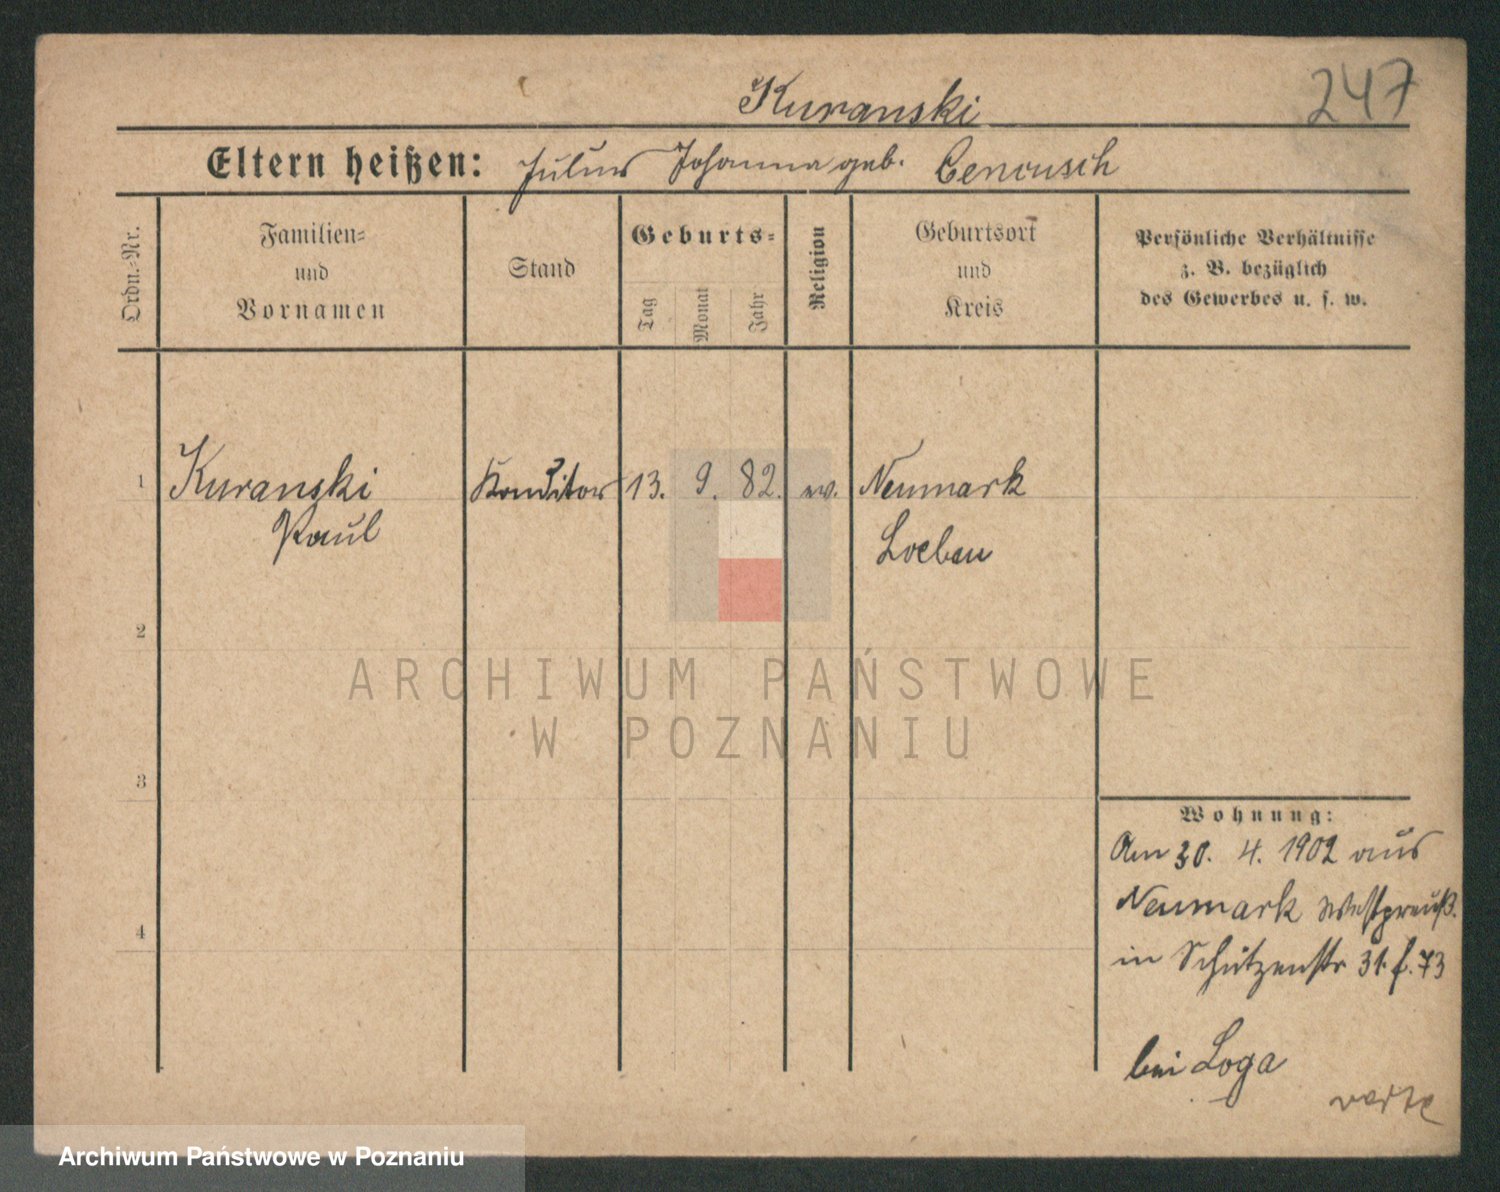 247
Kuranski
Eltern heißen: Julius Johanna geb.
Ordn.-Nr.
Familien- und Vornamen
Stand
Geburts-
Tag
Monat
Jahr
Religion
Geburtsort und Kreis
Persönliche Verhältnisse
z. B. bezüglich
des Gewerbes u. s. w.
1 Kuranski Konditor 13. 9. 82. ev. Neumark
Paul Loebau
2
3
4
ARCHIWUM PAŃSTWOWE
W POZNANIU
Wohnung:
Am 30. 4. 1902 aus
Neumark Westpreuß.
in Schützenstr 31. f. 73
bei Loga
verte
Archiwum Państwowe w Poznaniu